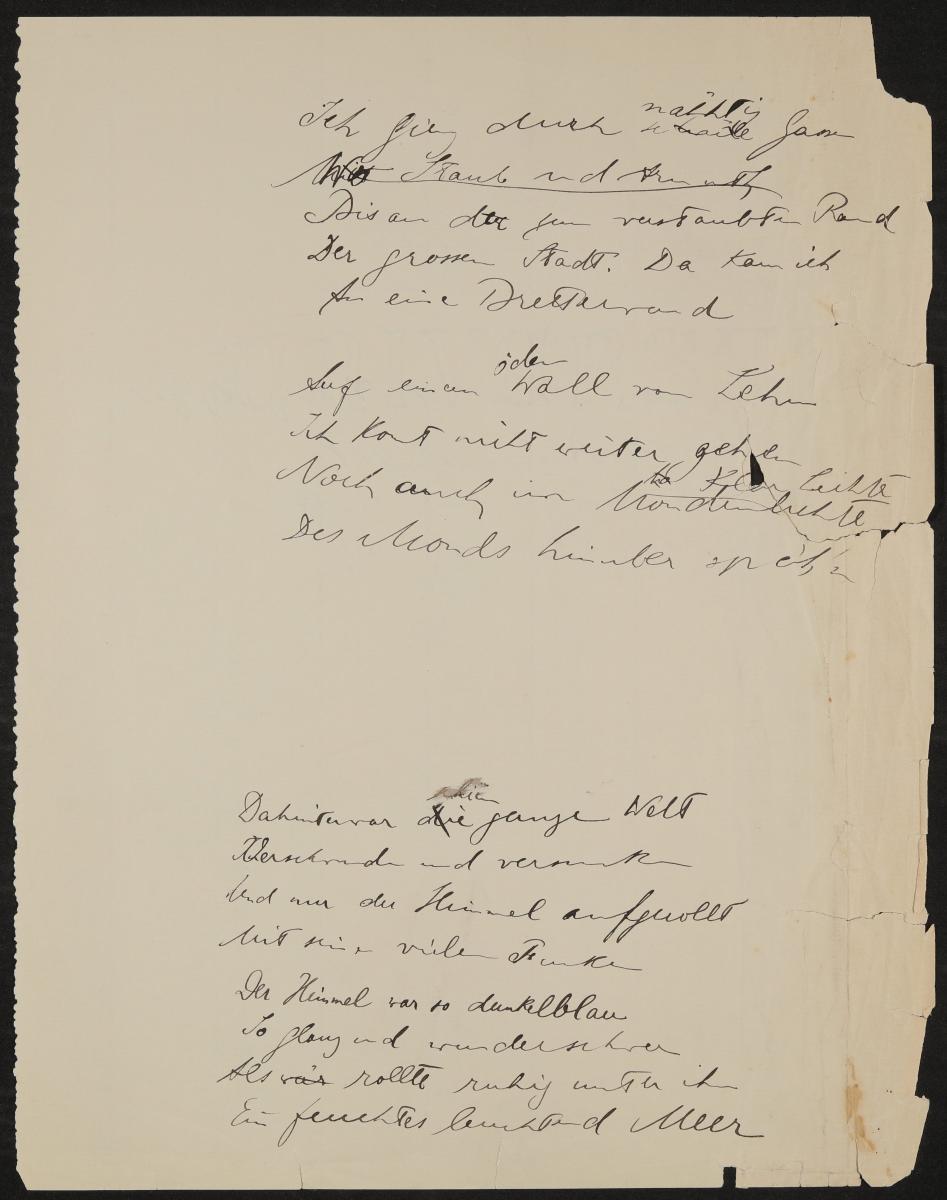 Ich gieng durch nächtig schmale Gassen
Mit Staub und Armuth
Bis an der zum verstaubten Rand
Der grossen Stadt. Da kam ich
An eine Bretterwand
öden
Auf einen Wall von Lehm
Ich konnt nicht weiter gehen
Klar Lichte
Noch auch im Mondenlichte
Des Monds hinüber späh'n
Dahinter war die ganze Welt
Verschwunden und versunken
Und nur der Himmel aufgerollt
Mit seinen vielen Funken
Der Himmel war so dunkelblau
So glanz und wunderschwer
Als wär rollte ruhig unter ihm
Ein feuchtes leuchtend Meer